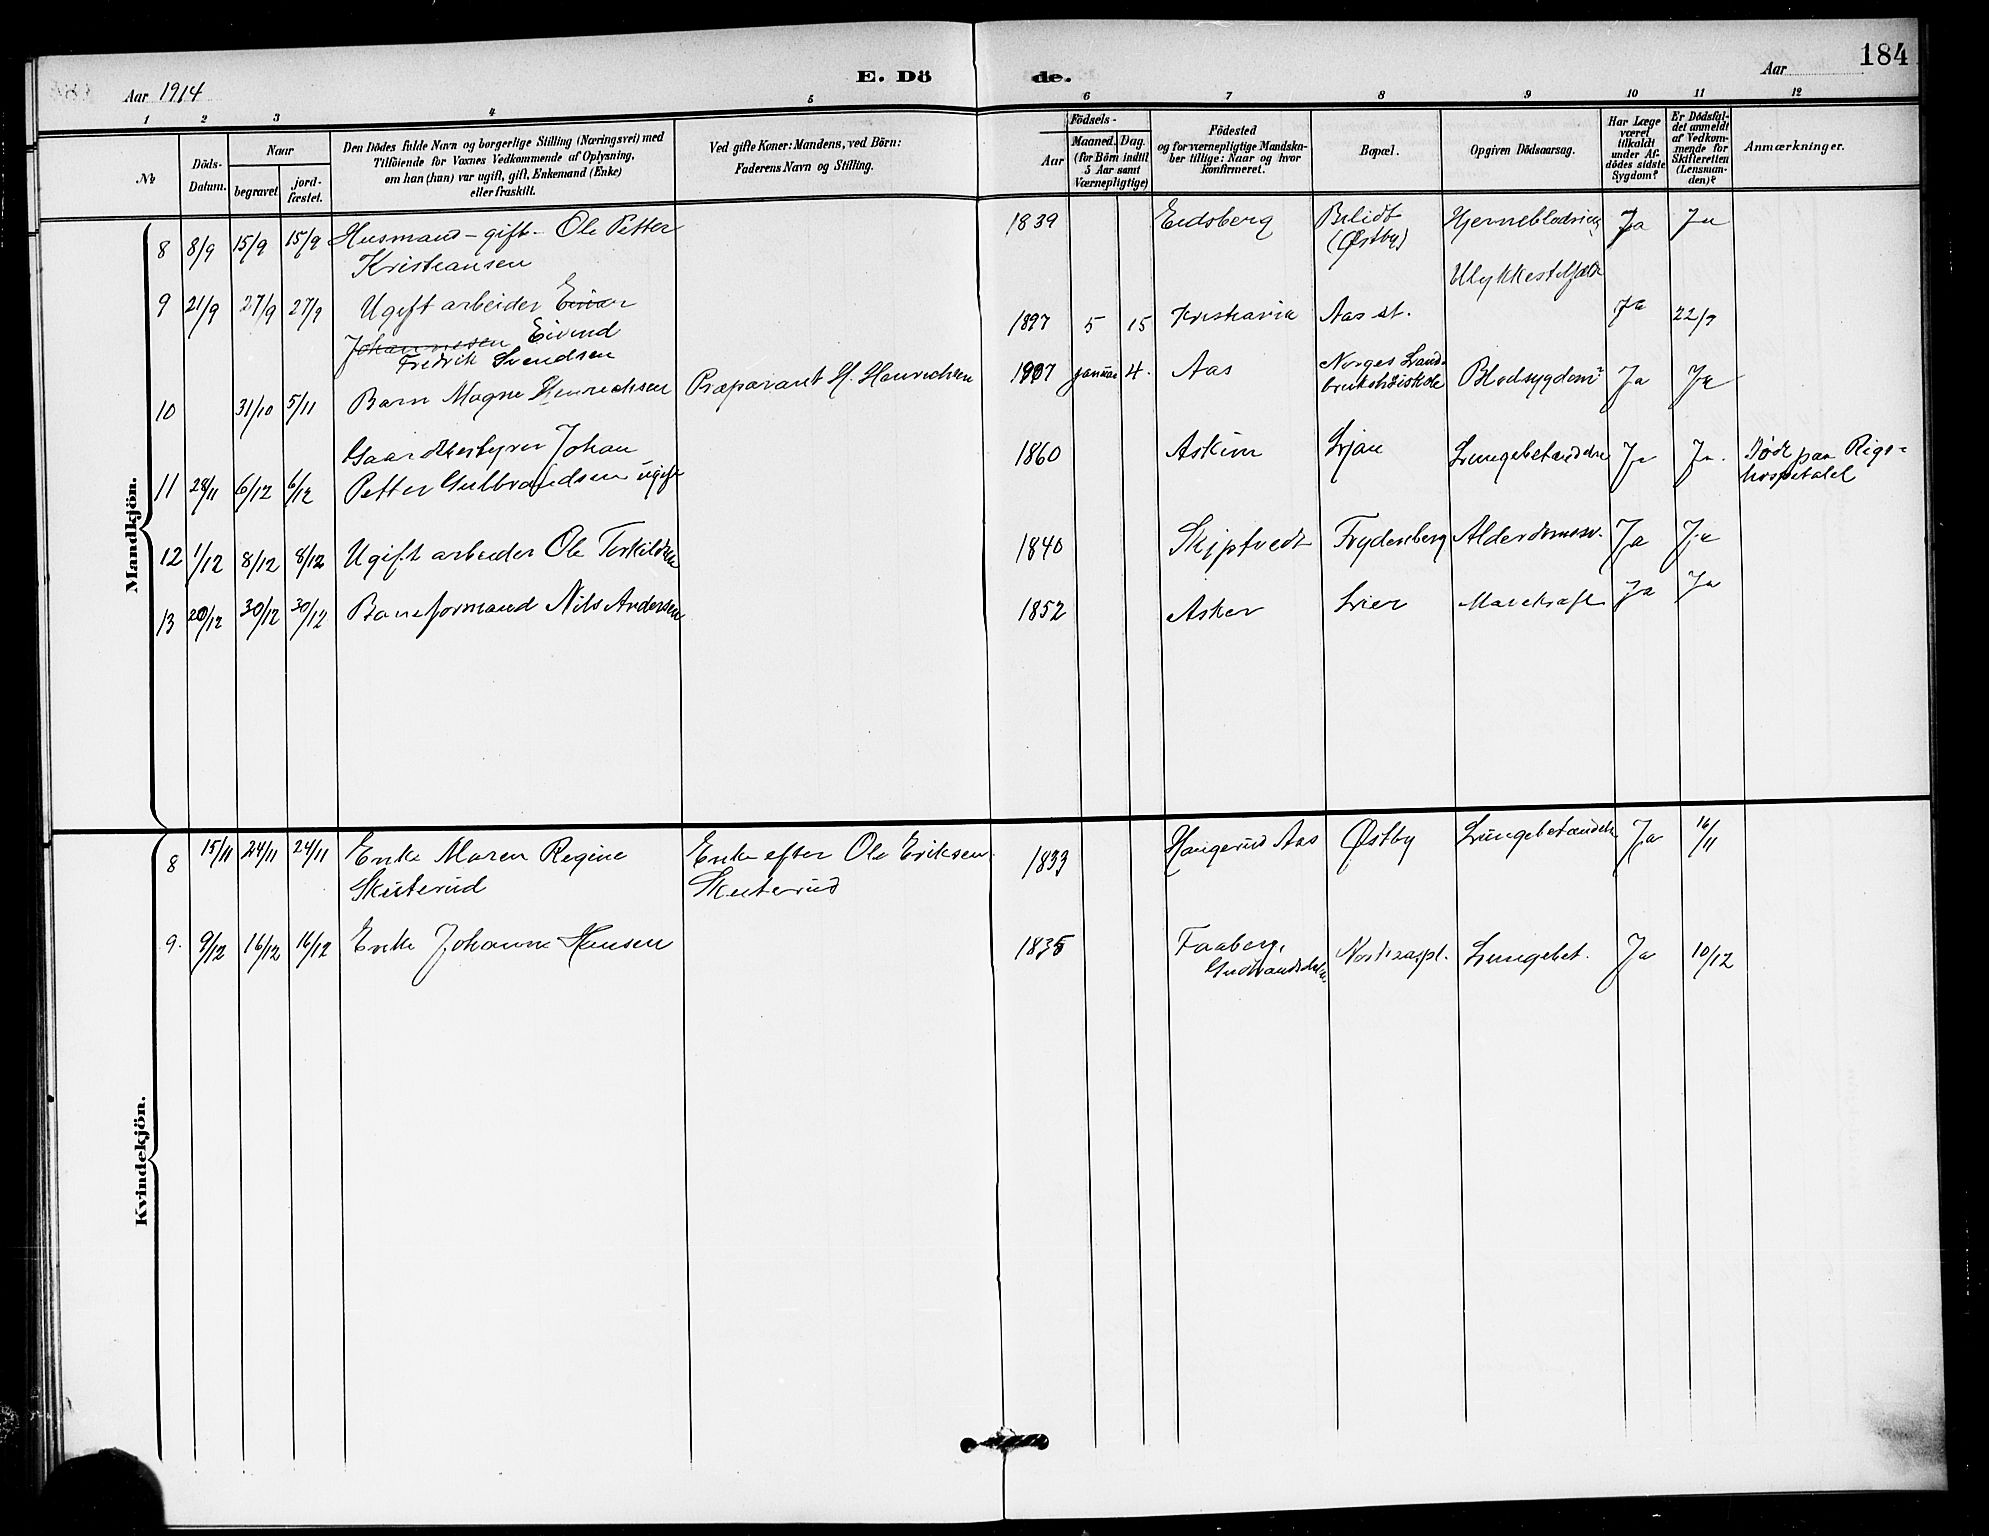 184
Aar 1914
E. Dö de.
Aar
1 2 3 4 5 6 7 8 9 10 11 12
№
Döds-
Datum.
Naar
begravet
jord-
fæstet.
Den Dödes fulde Navn og borgerlige Stilling (Næringsvei) med
Tilföiende for Voxnes Vedkommende af Oplysning,
om han (hun) var ugift, gift, Enkemand (Enke)
eller fraskilt.
Ved gifte Koner: Mandens, ved Börn:
Faderens Navn og Stilling.
Födsels-
Aar
Maaned. Dag.
(for Börn indtil
5 Aar samt
Værnepligtige)
Födested
og for værnepligtige Mandska-
ber tillige: Naar og hvor
konfirmeret.
Bopæl.
Opgiven Dödsaarsag.
Har Læge
været
tilkaldt
under Af-
dödes sidste
Sygdom?
Er Dödsfal-
det anmeldt
af Vedkom-
mende for
Skifteretten
(Lensman-
den)?
Anmærkninger.
Mandkjön.
8 8/9 15/9 15/9 Husmand - gift - Ole Petter 1839 Eidsberg Ja Ja
Kristiansen (Østby)
9 21/9 27/9 27/9 Ugift arbeider Einar 1897 5 15 Kristiania Aas st. Ulykkestilfælde Ja 22/9
Johannesen Eivind
Fredrik Svendsen
10 31/10 5/11 Barn Magne Henrichsen Præparant H. Henrichsen 1907 januar 4. Aas Norges Land-
brukshöiskole Blodsygdom Ja Ja
11 28/11 6/12 6/12 Gaardbestyrer Johan 1860 Askim Ljan Lungebetændelse Ja Ja. Døde paa Rigs-
Petter Gulbrandsen ugift hospitalet
12 1/12 8/12 8/12 Ugift arbeider Ole Torkildsen 1840 Skiptvedt Frydenberg Alderdomssv. Ja Ja
13 20/12 30/12 30/12 Baneformand Nils Andersen 1852 Asker Lier Mavekræft Ja Ja
Kvindekjön.
8 15/11 24/11 24/11 Enke Maren Regine Enke efter Ole Eriksen 1833 Haugerud Aas Østby Lungebetændelse Ja 16/11
Skuterud Skuterud
9. 9/12 16/12 16/12 Enke Johanne Hansen 1835 Faaberg, Lungebet. Ja 10/12
Gudbrandsdalen